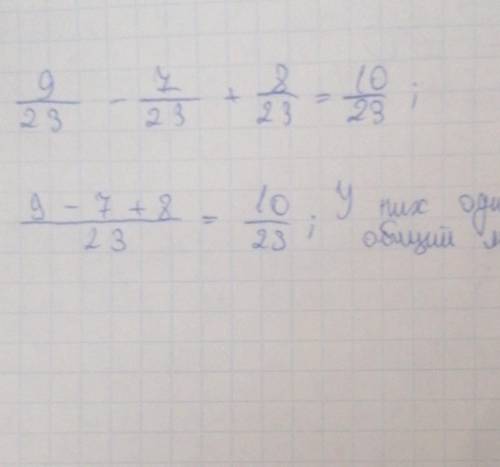 9/23 - 7/23 + 8/23 = 10/23;
(9 - 7 + 8)/23 = 10/23; У них
общий